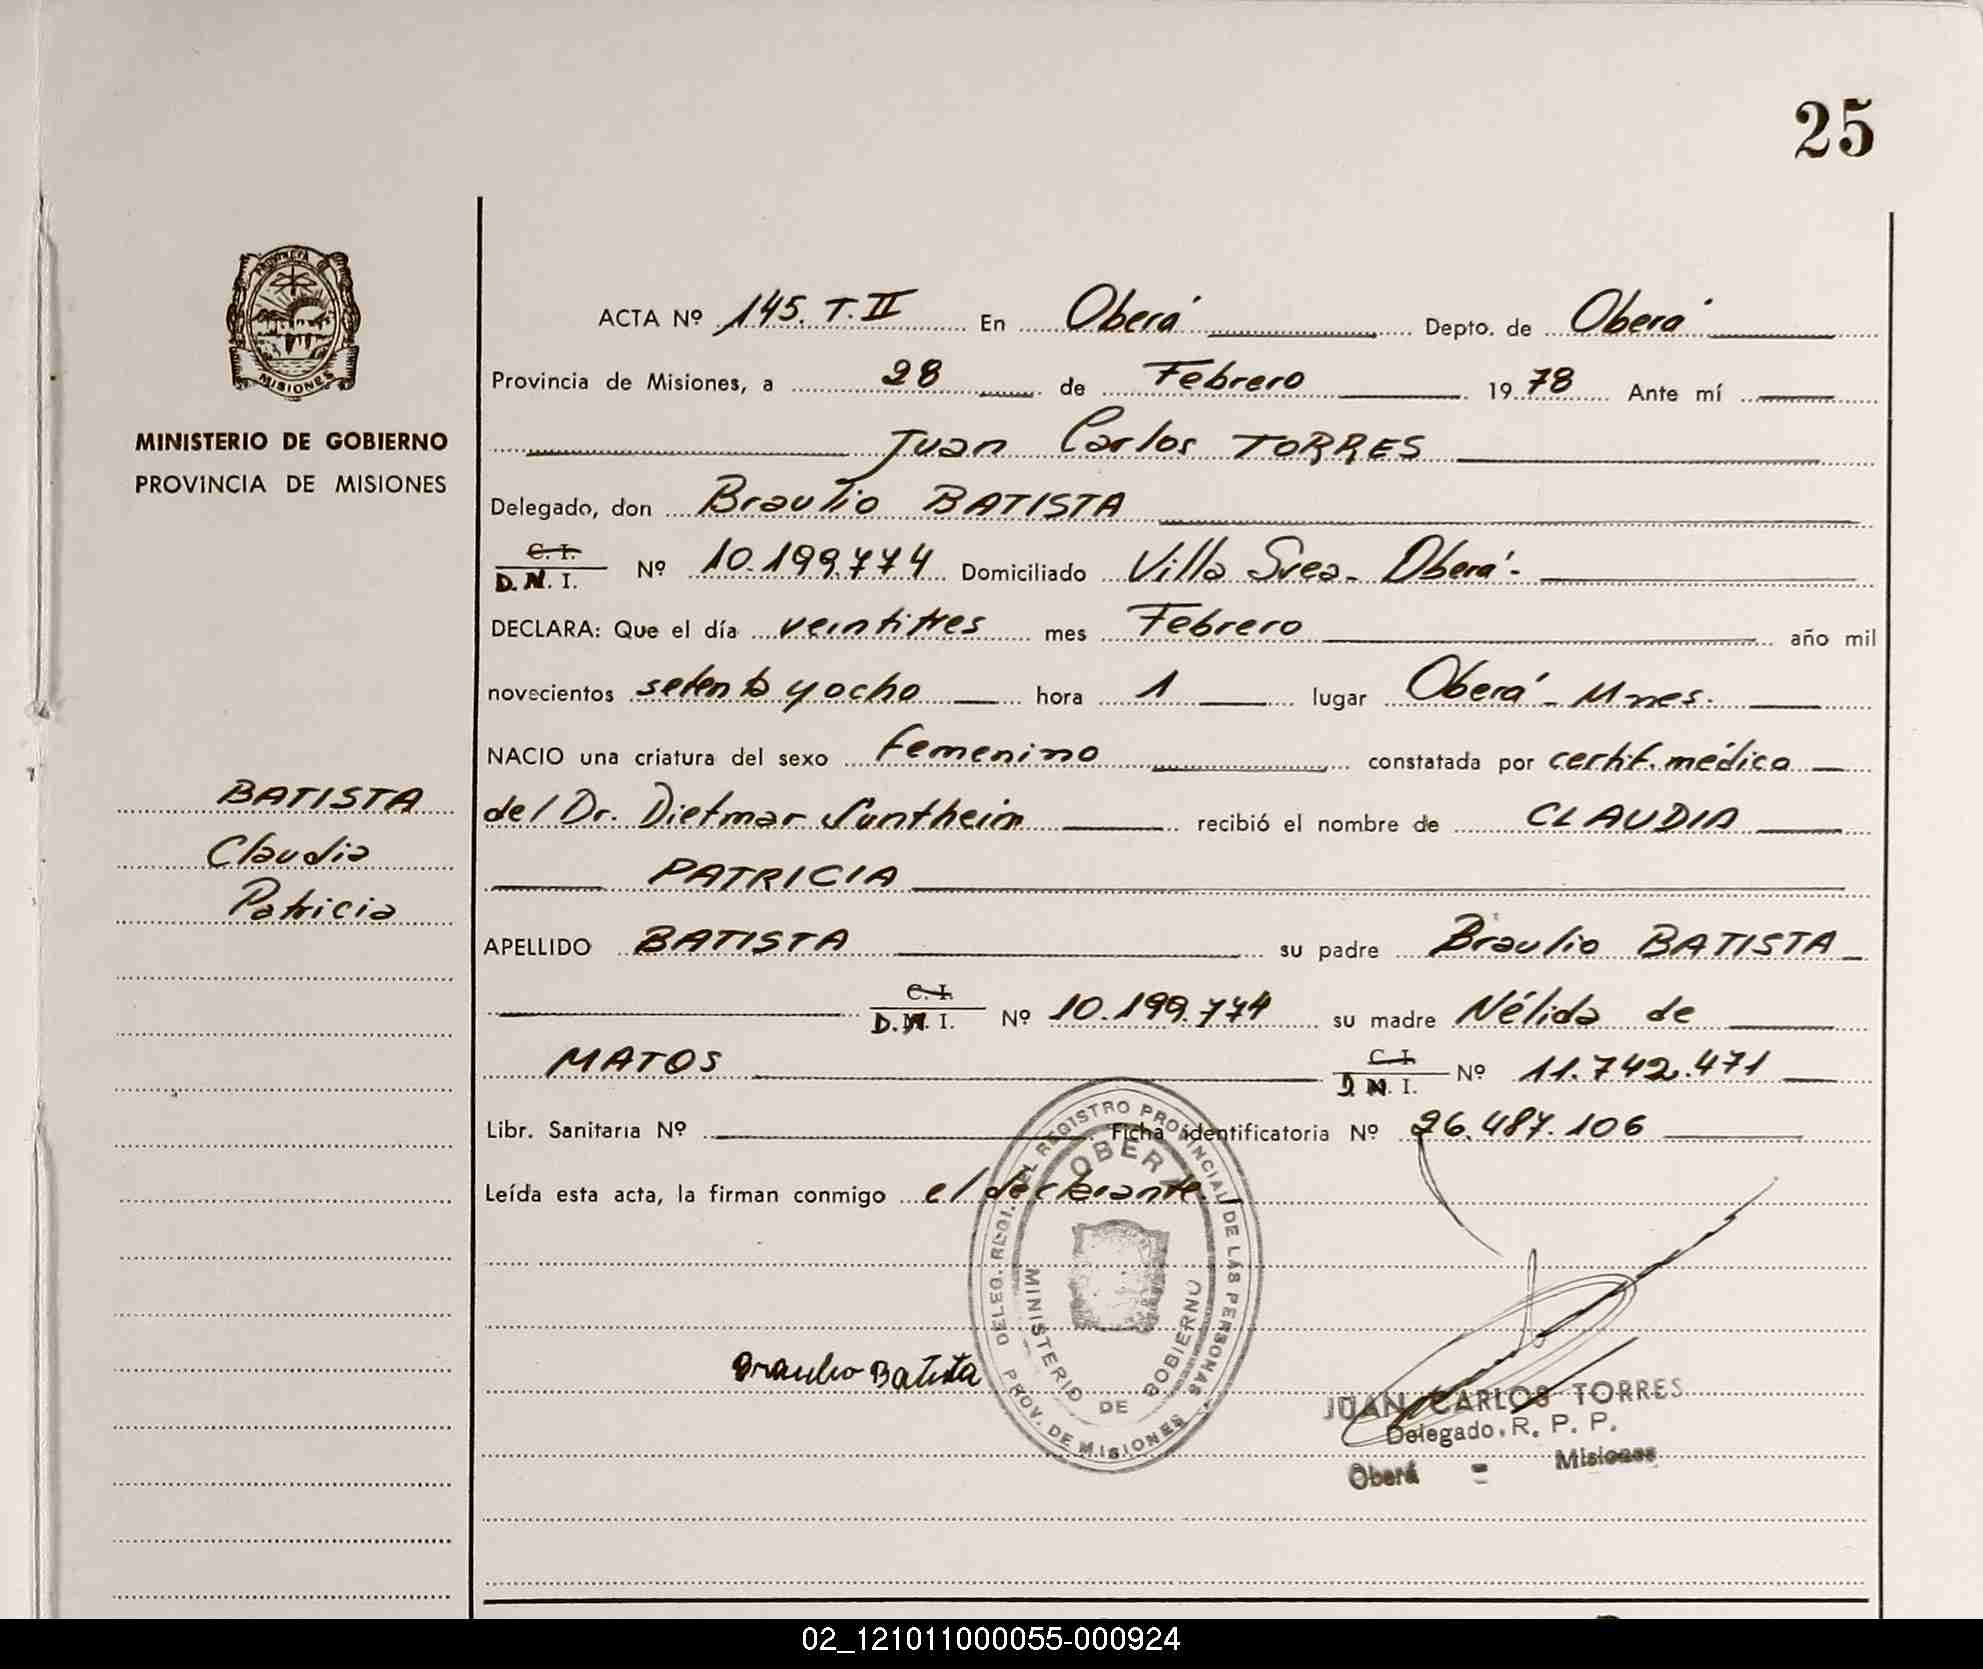 25
PROVINCIA
MISIONES
MINISTERIO DE GOBIERNO
PROVINCIA DE MISIONES
BATISTA
Claudia
Patricia
ACTA Nº 145. T. II En Oberá Depto. de Oberá
Provincia de Misiones, a 28 de Febrero 1978 Ante mí
Juan Carlos TORRES
Delegado, don Braulio BATISTA
C. I.
D. N. I. Nº 10.199.774 Domiciliado Villa Svea - Oberá -
DECLARA: Que el día veintitres mes Febrero año mil
novecientos setenta y ocho hora 1 lugar Oberá - Mnes.
NACIO una criatura del sexo femenino constatada por certif. médico
del Dr. Dietmar Suntheim recibió el nombre de CLAUDIA
PATRICIA
APELLIDO BATISTA su padre Braulio BATISTA
C. I.
D. N. I. Nº 10.199.774 su madre Nélida de
MATOS C. I.
D. N. I. Nº 11.742.471
Libr. Sanitaria Nº Ficha identificatoria Nº 26.487.106
Leída esta acta, la firman conmigo el declarante.
REGISTRO PROVINCIAL DE LAS PERSONAS
OBERA
MINISTERIO DE GOBIERNO
PROV. DE MISIONES
Braulio Batista
JUAN CARLOS TORRES
Delegado. R. P. P.
Oberá - Misiones
02_121011000055-000924